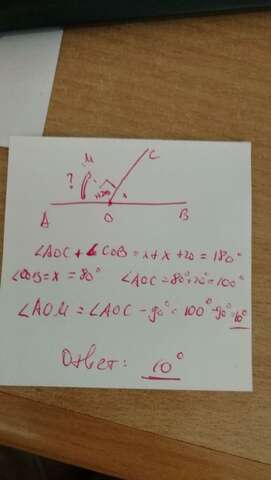 M
C
?
x+20
x
A O B
∠AOC + ∠COB = x + x + 20 = 180°
∠COB = x = 80° ∠AOC = 80° + 20° = 100°
∠AOM = ∠AOC - 90° = 100° - 90° = 10°
Ответ: 10°